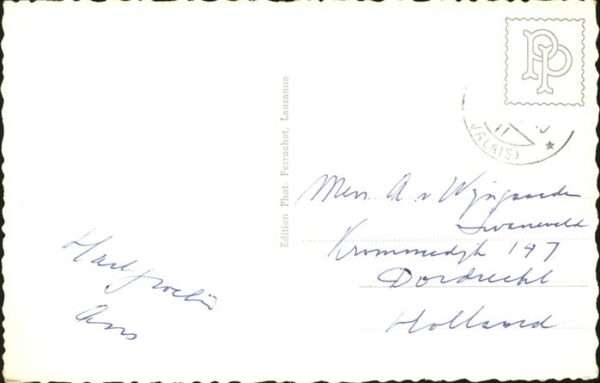 PP
(VALAIS)
Edition Phot. Perrochet, Lausanne
Mevr. A. v. Wijngaarden
Krommedijk 147
Dordrecht
Holland
Hart. groeten
Ans